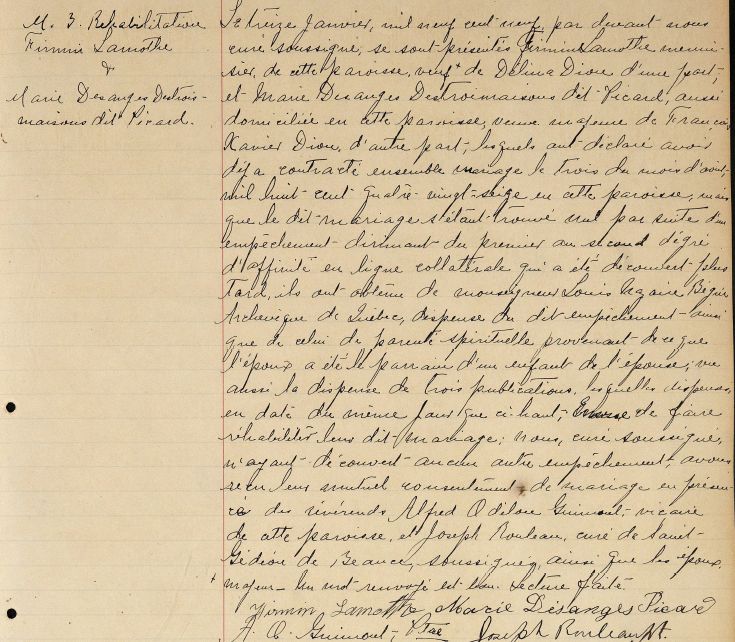 M. 3. Rehabilitation
Firmin Lamothe
&
Marie Desanges Destrois-
maisons dit Picard.
Le treize Janvier, mil neuf cent neuf par devant nous
curé soussigné, se sont présentés Firmin Lamothe menui-
sier, de cette paroisse, veuf + de Délina Dion d'une part,
et Marie Desanges Destroimaisons dit Picard, aussi
domiciliée en cette paroisse, veuve majeure de François
Xavier Dion, d'autre part, lesquels ont déclaré avoir
déja contracté ensemble mariage le trois du mois d'août,
mil huit cent quatre-vingt-seize en cette paroisse, mais
que le dit mariage s'étant trouvé nul par suite d'un
empêchement dirimant du premier au second dégré
d'affinité en ligne collatérale qui a été découvert plus
tard, ils ont obtenu de monseigneur Louis Nazaire Bégin
Archevêque de Québec, dispense du dit empêchement ainsi
que de celui de parenté spirituelle provenant de ce que
l'époux a été le parrain d'un enfant de l'épouse; vu
aussi la dispense de trois publications, lesquelles dispenses
en date du même jour que ci-haut, de faire
réhabiliter leur dit mariage; nous, curé soussigné,
n'ayant découvert aucun autre empêchement, avons
reçu leur mutuel consentement de mariage en présen-
ce des révérends Alfred Odilon Guimont, vicaire
de cette paroisse, et Joseph Rouleau, curé de Saint-
Gédéon de Beauce, soussignés, ainsi que les époux.
+ majeur - Un mot renvoyé est bon. Lecture faite.
Firmin Lamothe Marie Désanges Picard
A. O. Guimont Ptre Joseph Rouleau Pt.